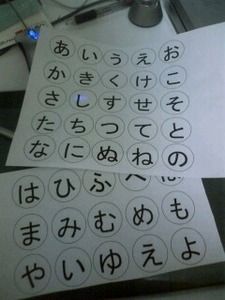 あ い う え お
か き く け こ
さ し す せ そ
た ち つ て と
な に ぬ ね の
は ひ ふ へ ほ
ま み む め も
や い ゆ え よ